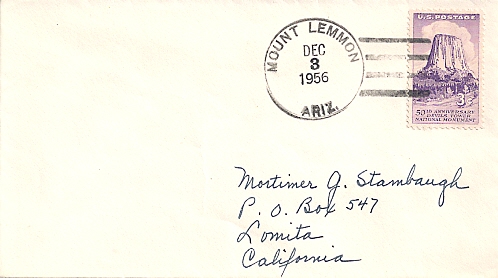 U.S. POSTAGE
MOUNT LEMMON
DEC
3
1956
ARIZ.
3¢
50TH ANNIVERSARY
DEVILS TOWER
NATIONAL MONUMENT
Mortimer J. Stambaugh
P. O. Box 547
Lomita
California